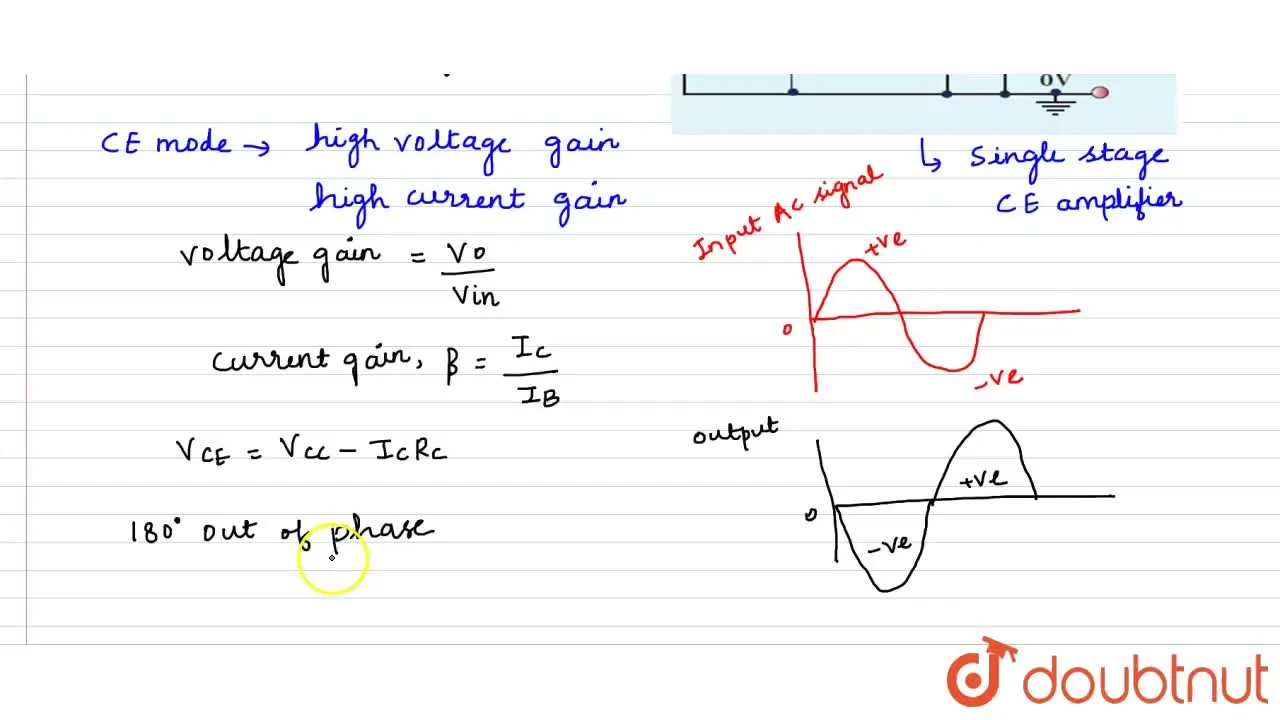 0V
CE mode → high voltage gain
high current gain
↳ Single stage
CE amplifier
Voltage gain = Vo / Vin
Current gain, β = IC / IB
VCE = VCC - ICRC
180° out of phase
Input AC signal
+ve
0
-ve
output
+ve
0
-ve
doubtnut